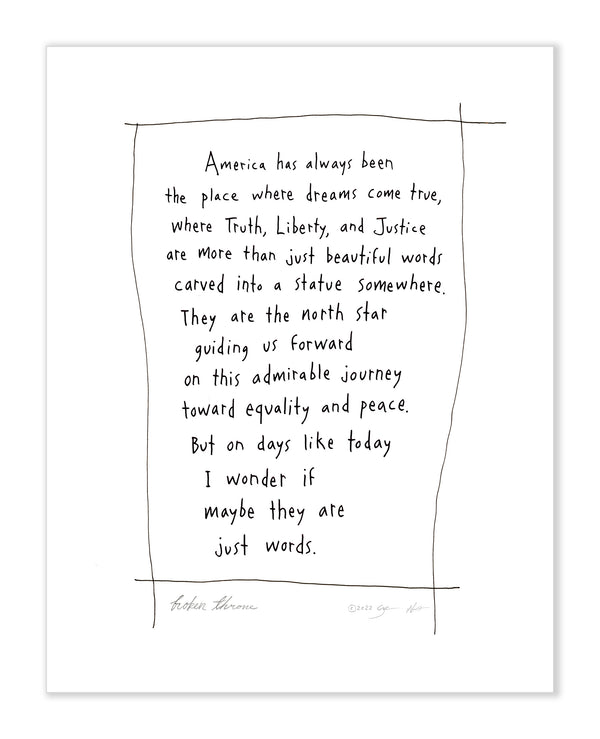 America has always been
the place where dreams come true,
where Truth, Liberty, and Justice
are more than just beautiful words
carved into a statue somewhere.
They are the north star
guiding us forward
on this admirable journey
toward equality and peace.
But on days like today
I wonder if
maybe they are
just words.
broken throne ©2022